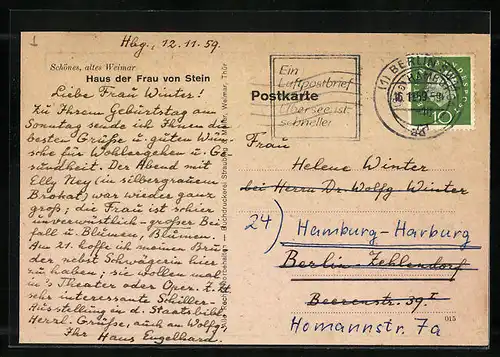 1
Hbg., 12.11.59.
Schönes, altes Weimar
Haus der Frau von Stein
Liebe Frau Winter!
Zu Ihrem Geburtstag am
Sonntag sende ich Ihnen die
besten Grüße u. guten Wün-
sche für Wohlergehen u. Ge-
sundheit. Der Abend mit
Elly Ney (in silbergrauem
Brokat) war wieder ganz
groß, die Frau ist schier
unverwüstlich - großer Bei-
fall u. Blumen, Blumen.
Am 21. hoffe ich meinen Bru-
der nebst Schwägerin hier
zu haben; sie wollen mal
in's Theater oder Oper. Z. Zt.
sehr interessante Schiller-
Ausstellung in d. Staatsbibl.
Herzl. Grüße, auch an Wolfg.,
Ihr Hans Engelhard.
Ein
Luftpostbrief
Übersee ist
schneller
Postkarte
BERLIN
10
Frau
Helene Winter
bei Herrn Dr. Wolfg. Winter
24) Hamburg-Harburg
Berlin-Zehlendorf
Beerenstr. 39 I
Homannstr. 7a
015